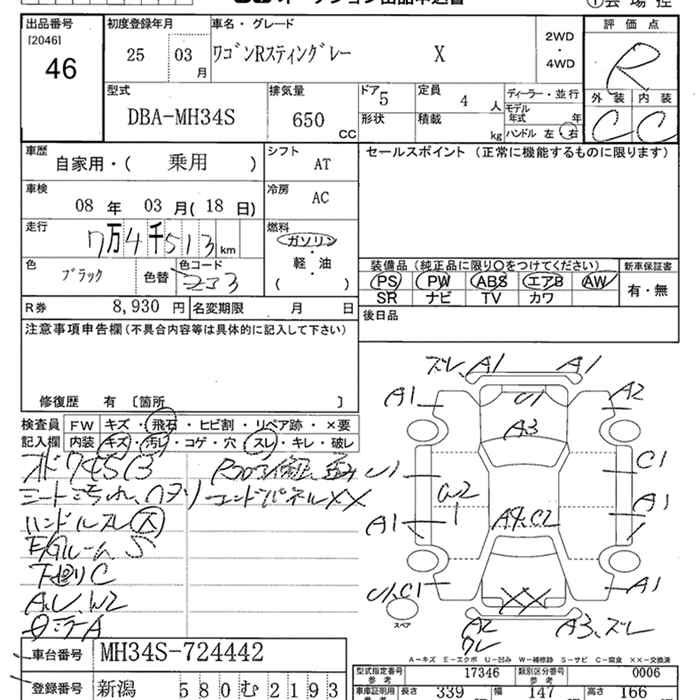 出品番号 初度登録年月 車名・グレード 評価点
[2046]
46 25 03月 ワゴンRスティングレー X 2WD・4WD R
型式 排気量 ドア 5 定員 4人 ディーラー・並行 外装 内装
DBA-MH34S 650CC 形状 積載 kg モデル年式 年 C C
ハンドル 左 右
車歴 シフト セールスポイント (正常に機能するものに限ります)
自家用・( 乗用 ) AT
車検 冷房
08年 03月(18日) AC
走行 燃料
7万4千513km ガソリン
軽・油
( )
色 色コード 装備品 (純正品に限り○をつけてください) 新車保証書
ブラック 色替 Z33 PS PW ABS エアB AW 有・無
SR ナビ TV カワ
R券 8,930円 名変期限 月 日 後日品
注意事項申告欄 (不具合内容等は具体的に記入して下さい)
修復歴 有 [箇所 ]
検査員 FW キズ・飛石・ヒビ割・リペア跡・×要
記入欄 内装 キズ・汚レ・コゲ・穴・スレ・キレ・破レ
シート汚れ、ヘタリ エンドパネルXX
ハンドルスレ 大
E/Gルーム S
下廻りC
A、U、W2
ズレ、A1 A1
A1 U1 A2
A3
U1 C1
W2
1 A1
A1 A4、C2
U1、C1 A1
スペア XX
A2 A3、ズレ
ワレ
A-キズ E-エクボ U-凹み W-補修跡 S-サビ C-腐食 XX-交換済
車台番号 MH34S-724442
登録番号 新潟 580む2193
型式指定番号 参考 17346 類別区分番号 参考 0006
車庫証明用 参考 長さ 339 幅 147 高さ 166